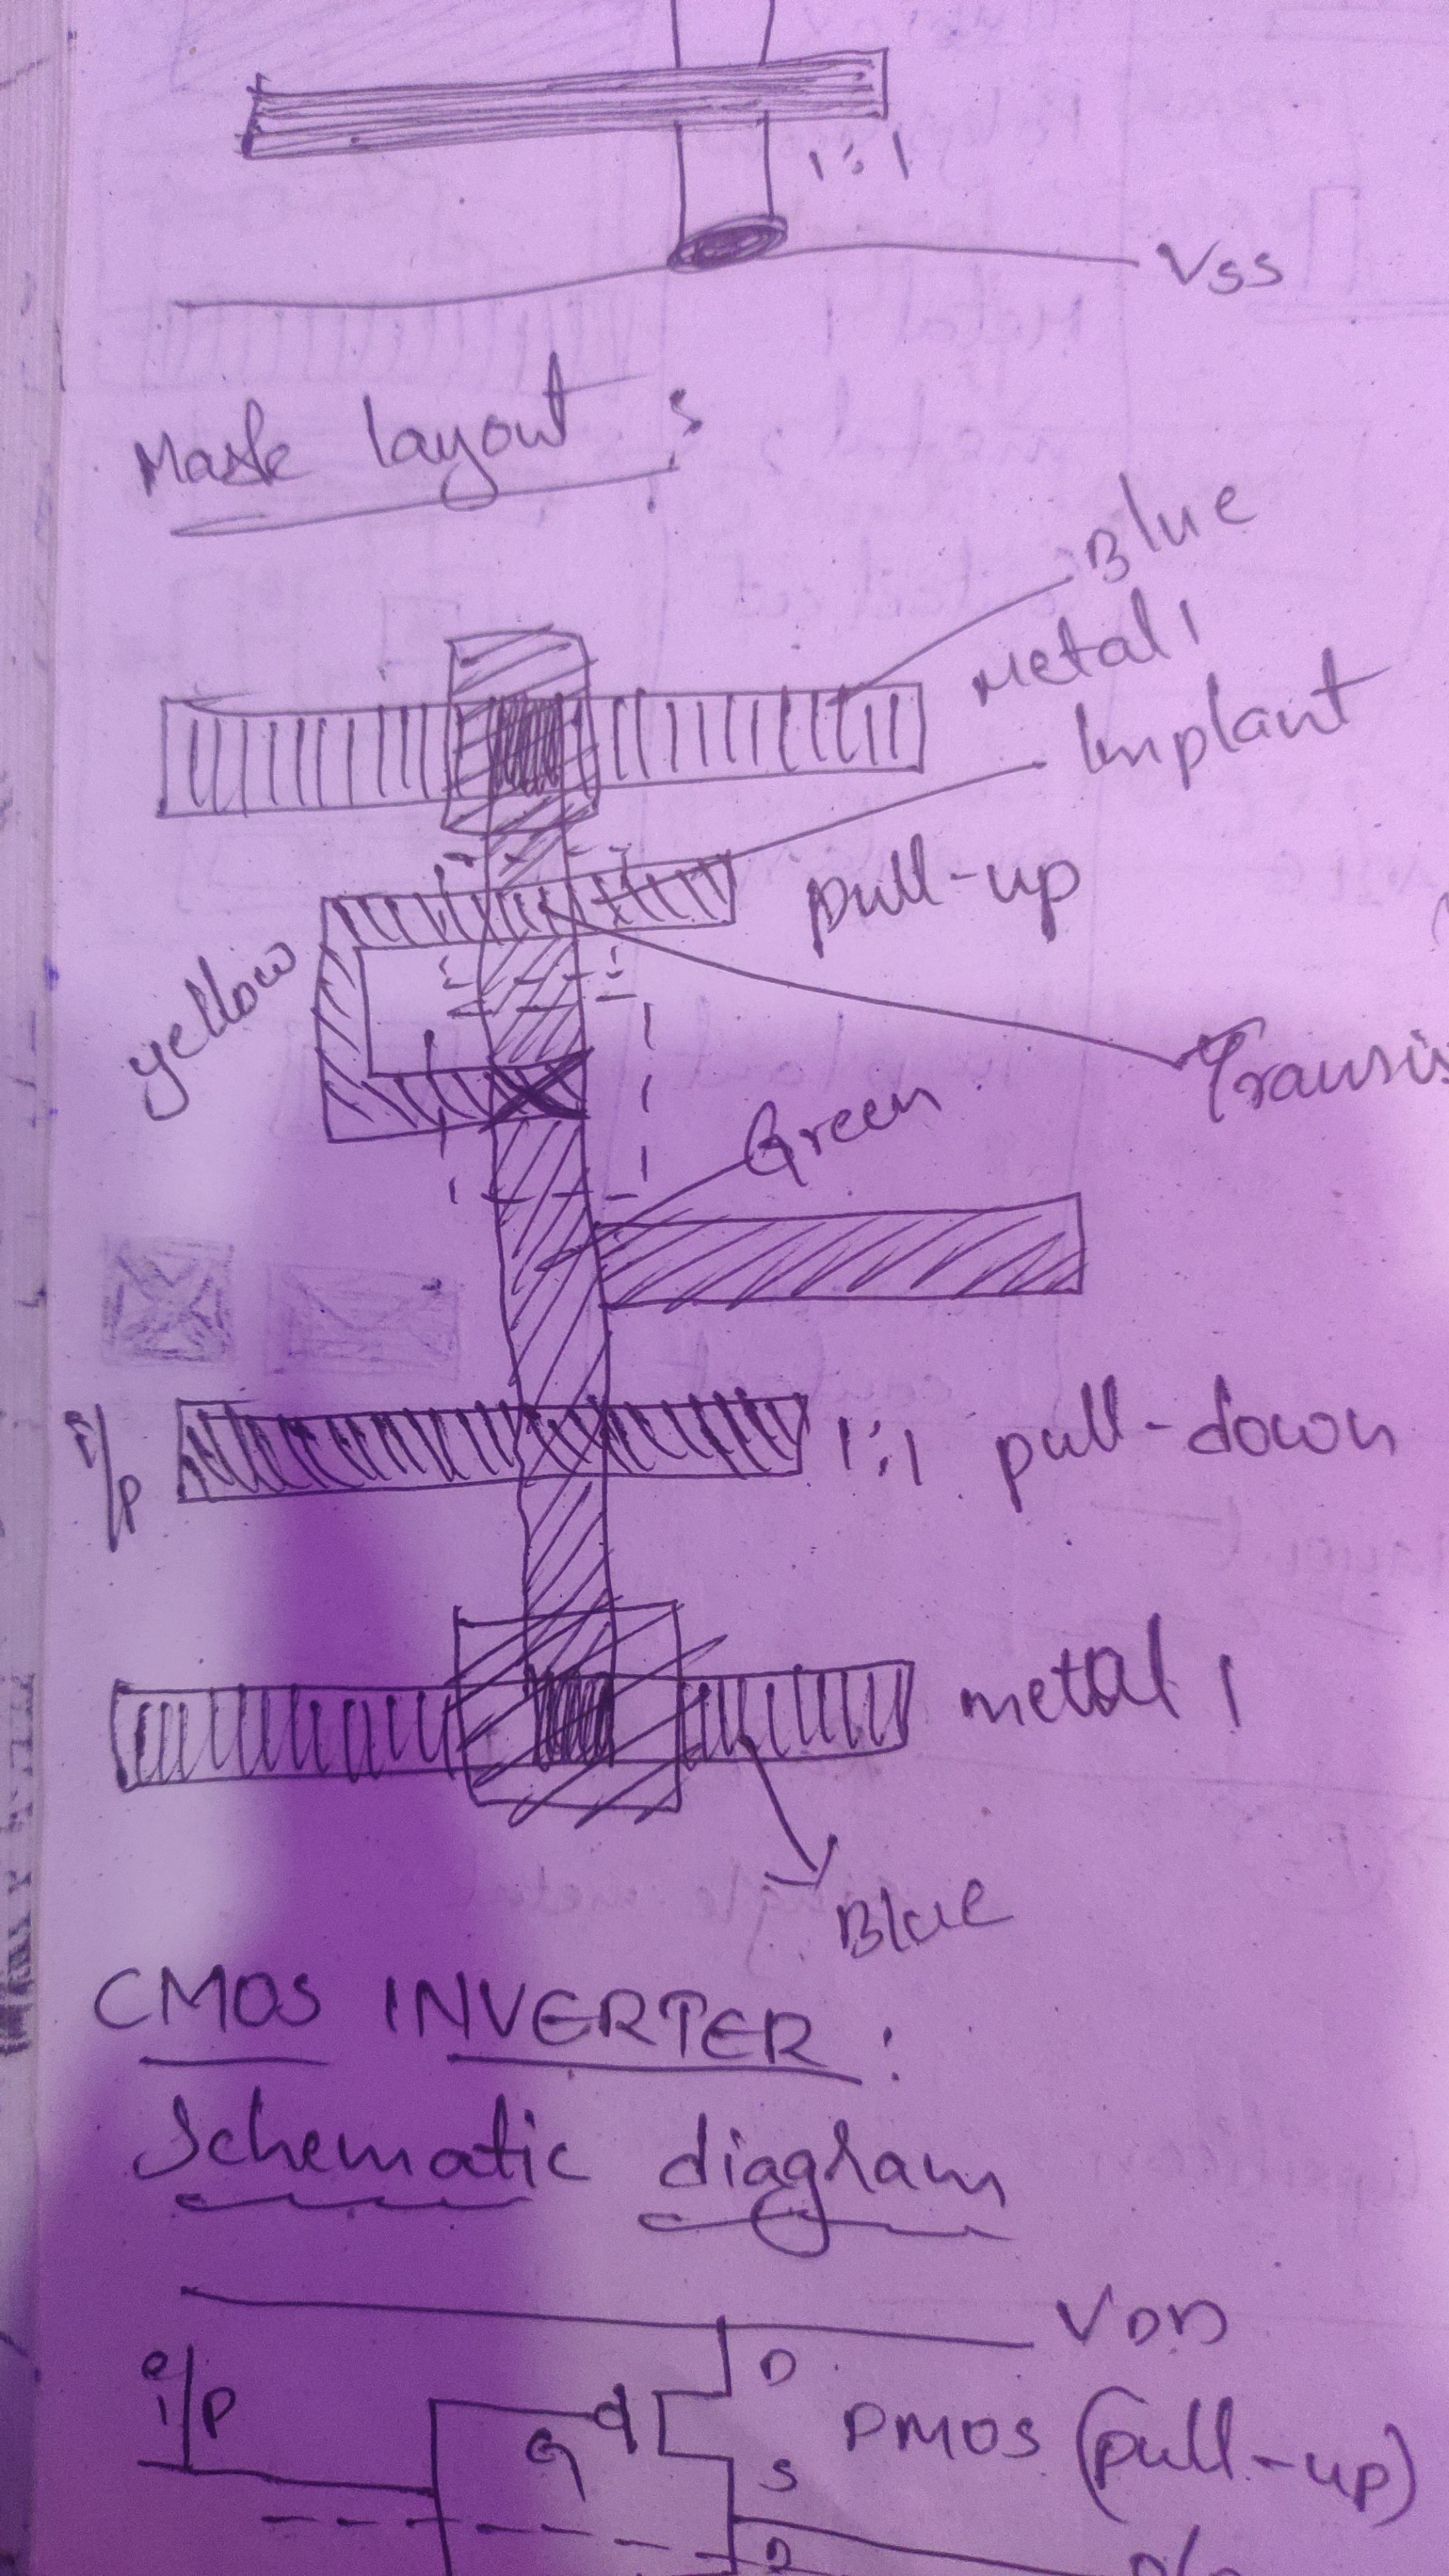 1:1
Vss
Mask layout :
Blue
Metal 1
Implant
pull-up
yellow
Transis
Green
i/p
1:1 pull-down
metal 1
Blue
CMOS INVERTER :
Schematic diagram
VDD
i/p
D
G
PMOS (pull-up)
S
D